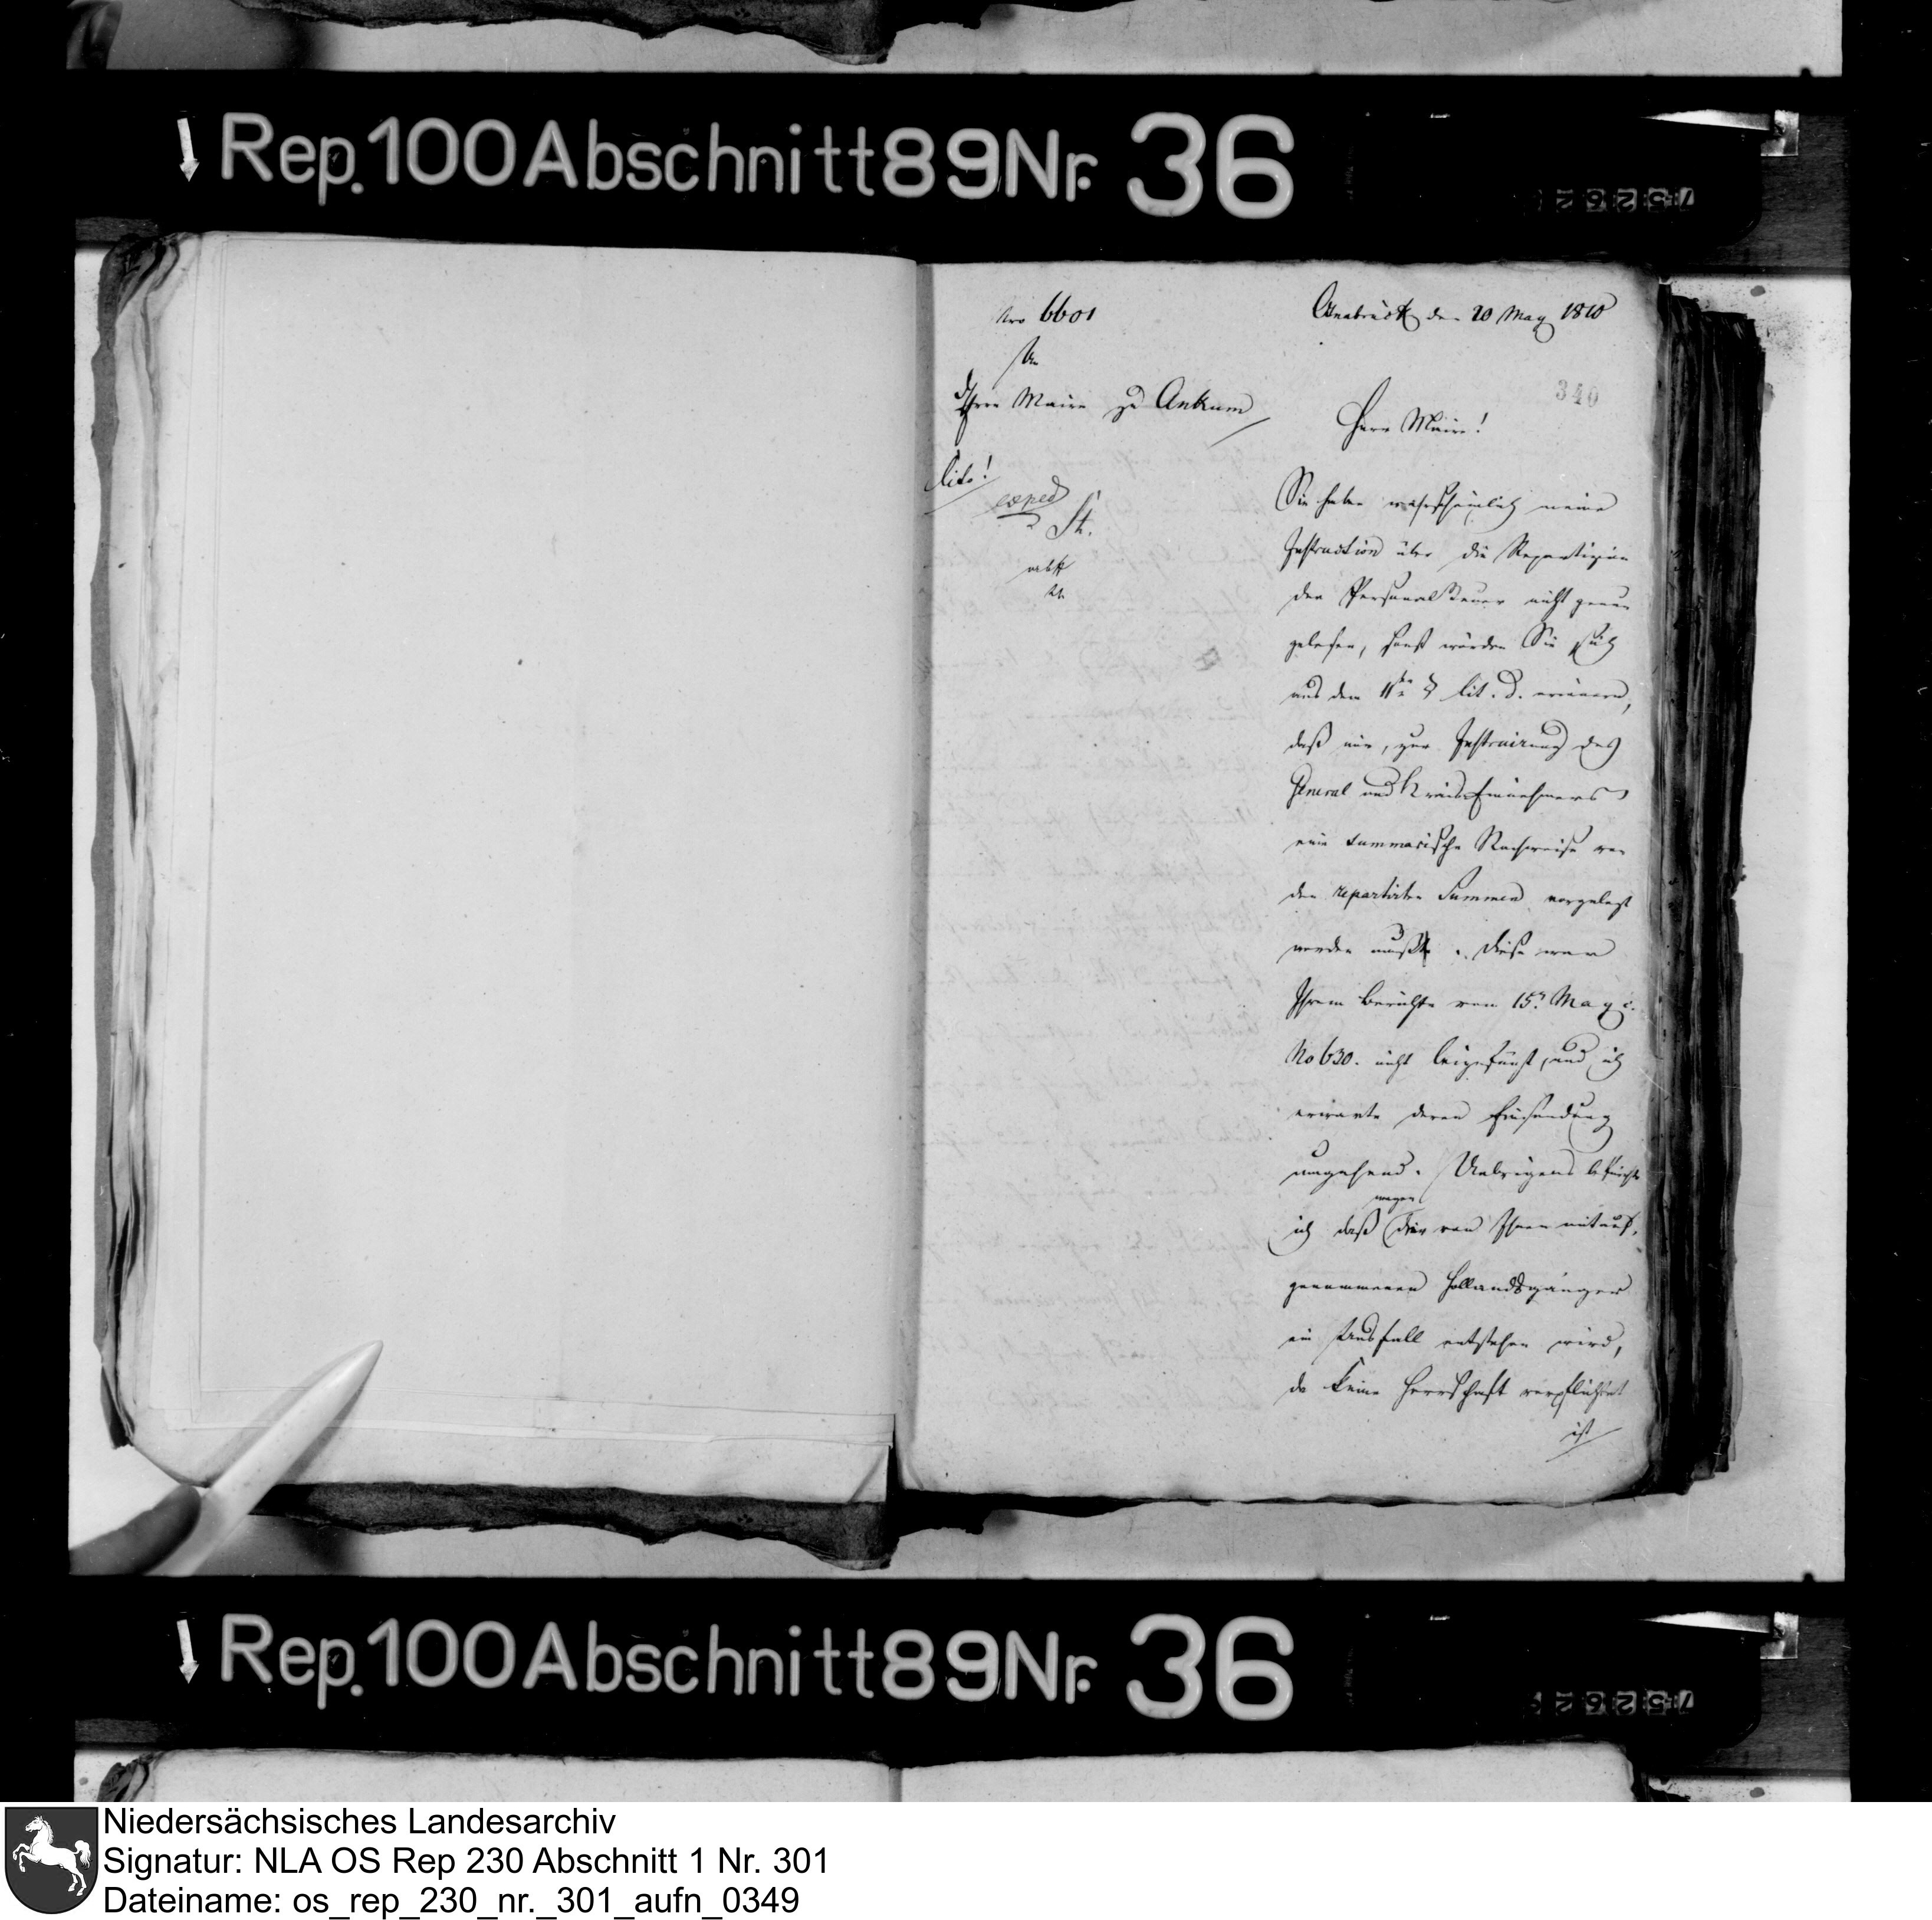 Rep. 100 Abschnitt 89 Nr. 36
Nro 6601
An
den Herrn Maire zu Ankum
Cito!
exped
St.
Osnabrück den 20 May 1810
340
Herr Maire!
Sie haben wahrscheinlich meine
Instruction über die Repartizion
der Personalsteuer nicht genau
gelesen, sonst würden Sie sich
aus dem 11ten § lit. d. erinnern,
daß mir, zur Instruirung des
General und Kreis Einnehmers
eine summarische Nachweise von
den repartirten Summen vorgelegt
werden mußte. Diese war
Ihrem Berichte vom 15n May c.
No 630. nicht beigefügt, und ich
erwarte deren Einsendung
umgehend. Uebrigens befürchte
ich daß wegen der von Ihnen mit auf,
genommenen Hollandsgänger
ein Ausfall entstehen wird,
da keine Herrschaft verpflichtet
ist
Rep. 100 Abschnitt 89 Nr. 36
Niedersächsisches Landesarchiv
Signatur: NLA OS Rep 230 Abschnitt 1 Nr. 301
Dateiname: os_rep_230_nr._301_aufn_0349